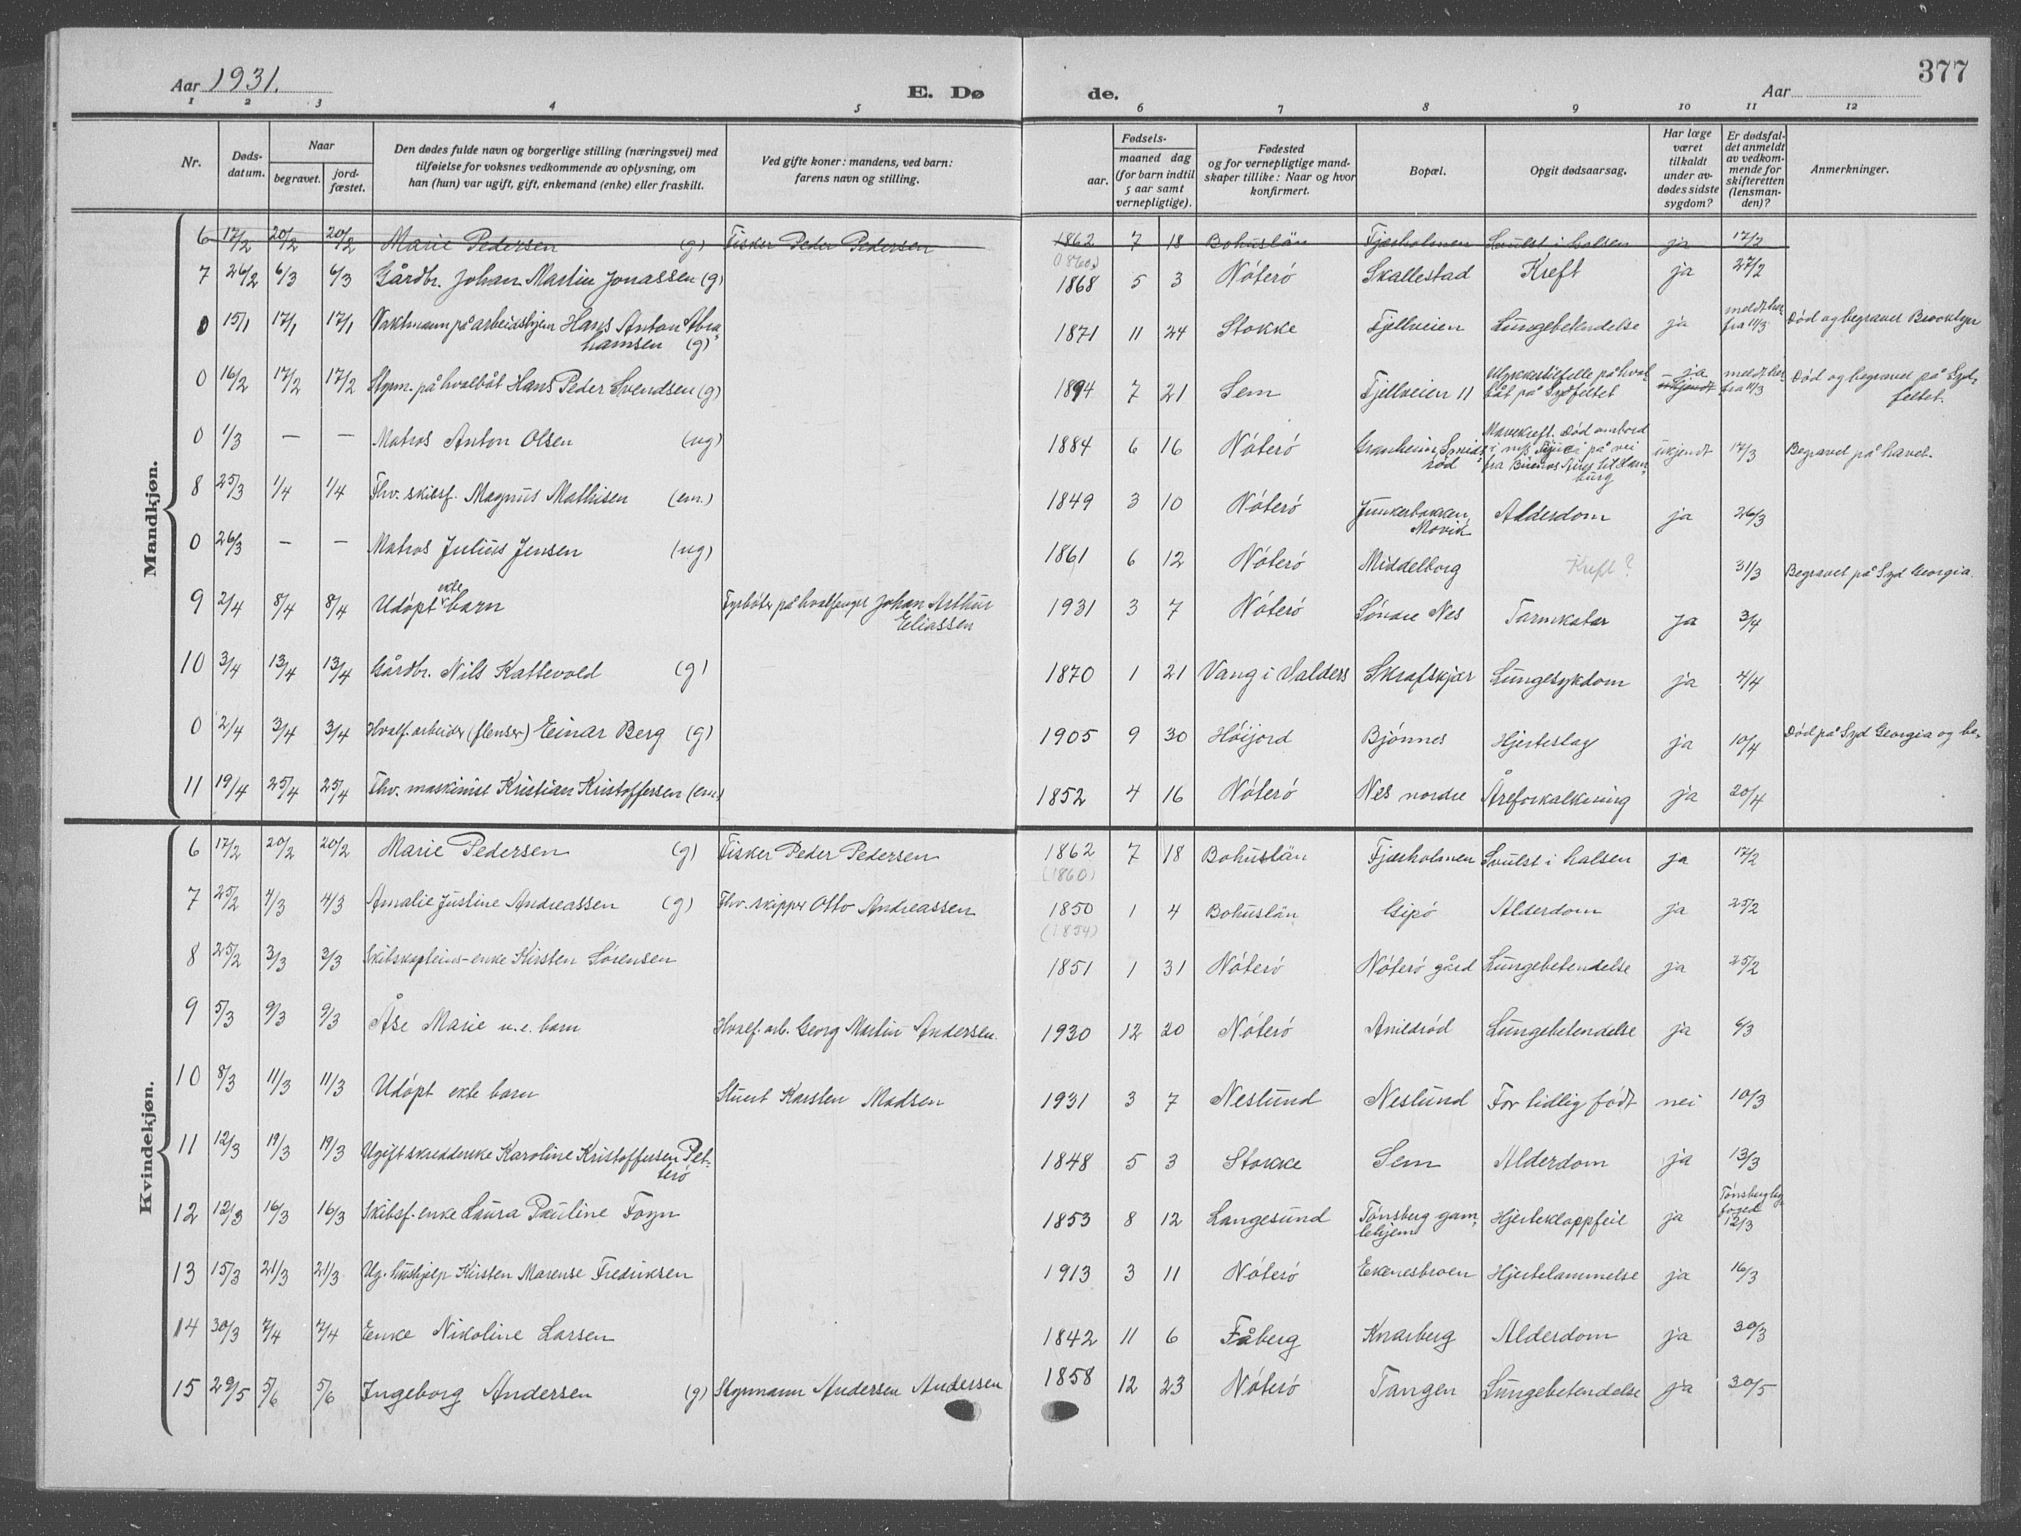 377
Aar 1931. E. Dø de. Aar
1 2 3 4 5 6 7 8 9 10 11 12
Nr.
Døds-
datum.
Naar
begravet.
jord-
fæstet.
Den dødes fulde navn og borgerlige stilling (næringsvei) med
tilføielse for voksnes vedkommende av oplysning, om
han (hun) var ugift, gift, enkemand (enke) eller fraskilt.
Ved gifte koner: mandens, ved barn:
farens navn og stilling.
Fødsels-
aar.
maaned dag
(for barn indtil
5 aar samt
vernepligtige).
Fødested
og for vernepligtige mand-
skaper tillike: Naar og hvor
konfirmert.
Bopæl.
Opgit dødsaarsag.
Har læge
været
tilkaldt
under av-
dødes sidste
sygdom?
Er dødsfal-
det anmeldt
av vedkom-
mende for
skifteretten
(lensman-
den)?
Anmerkninger.
Mandkjøn.
6 17/2 20/2 20/2 Marie Pedersen (g) Fisker Peder Pedersen 1862 7 18 Bohuslän Fjærholmen Svulst i halsen ja 17/2
7 26/2 6/3 6/3 Gårdbr. Johan Martin Jonassen (g) 1868 5 3 Nöterö Skallestad Kreft ja 27/2
0 15/1 17/1 17/1 Vaktmann på arbeidshjem Hans Anton Abra-
hamsen (g) 1871 11 24 Stokke Fjellveien Lungebetendelse ja meldt her-
fra 11/3 Död og begravet Brooklyn
0 16/2 17/2 17/2 Styrm. på hvalbåt Hans Peder Svendsen (g) 1894 7 21 Sem Fjellveien 11 Ulykkestilfelle på hval-
båt på Sydfeltet ja
ukjendt meldt her-
fra 11/3 Död og begravet på Syd-
feltet.
0 1/3 — — Matros Anton Olsen (ug) 1884 6 16 Nöterö Granheim Smids-
röd Mavekreft. Död ombord
i m/s på vei
fra Buenos Aires til Ham-
burg ukjendt 17/3 Begravet på havet.
8 25/3 1/4 1/4 Fhv. skibsf. Magnus Mathisen (em.) 1849 3 10 Nöterö Junkerbakken
Alderdom ja 26/3
0 26/3 — — Matros Julius Jensen (ug) 1861 6 12 Nöterö Middelborg Kreft? 31/3 Begravet på Syd Georgia
9 2/4 8/4 8/4 Udöpt ekte barn Fyrböter på hvalfanger Johan Arthur
Eliassen 1931 3 7 Nöterö Söndre Nes Tarmkatar ja 3/4
10 3/4 13/4 13/4 Gårdbr. Nils Kattevold (g) 1870 1 21 Vang i Valders Skrafskjær Lungesykdom ja 4/4
0 2/4 3/4 3/4 Hvalf. arbeider (flenser) Einar Berg (g) 1905 9 30 Höijord Bjönnes Hjerteslag ja 10/4 Död på Syd Georgia og be-
11 19/4 25/4 25/4 Fhv. maskinist Kristian Kristoffersen (em.) 1852 4 16 Nöterö Nes nordre Åreforkalkning ja 20/4
Kvindekjøn.
6 17/2 20/2 20/2 Marie Pedersen (g) Fisker Peder Pedersen 1862
(1860) 7 18 Bohuslän Fjærholmen Svulst i halsen ja 17/2
7 25/2 4/3 4/3 Amalie Justine Andreassen (g) Fhv. skipper Otto Andreassen 1850
(1854) 1 4 Bohuslän Gipö Alderdom ja 25/2
8 25/2 3/3 3/3 Skibskapteins-enke Kirsten Sörensen 1851 1 31 Nöterö Nöterö gård Lungebetendelse ja 25/2
9 5/3 9/3 9/3 Åse Marie u.e. barn Hvalf. arb. Georg Martin Andersen. 1930 12 20 Nöterö Arildröd Lungebetendelse ja 6/3
10 8/3 11/3 11/3 Udöpt ekte barn Stuert Karsten Madsen 1931 3 7 Neslund Neslund For tidlig födt nei 10/3
11 12/3 19/3 19/3 Ugift skredderske Karoline Kristoffersen Pet-
terö 1848 5 3 Stokke Sem Alderdom ja 13/3
12 12/3 16/3 16/3 Skibsf. enke Laura Pauline Foyn 1853 8 12 Langesund Tönsberg gam-
lehjem Hjerteklappfeil ja Tönsberg by-
foged
12/3
13 15/3 21/3 21/3 Ug. hushjelp Kirsten Marense Fredriksen 1913 3 11 Nöterö Ekenesbroen Hjertelammelse ja 16/3
14 30/3 7/4 7/4 Enke Nikoline Larsen 1842 11 6 Fåberg Knarberg Alderdom ja 30/3
15 29/5 5/6 5/6 Ingeborg Andersen (g) Styrmann Andersen Andersen 1858 12 23 Nöterö Tangen Lungebetendelse ja 30/5